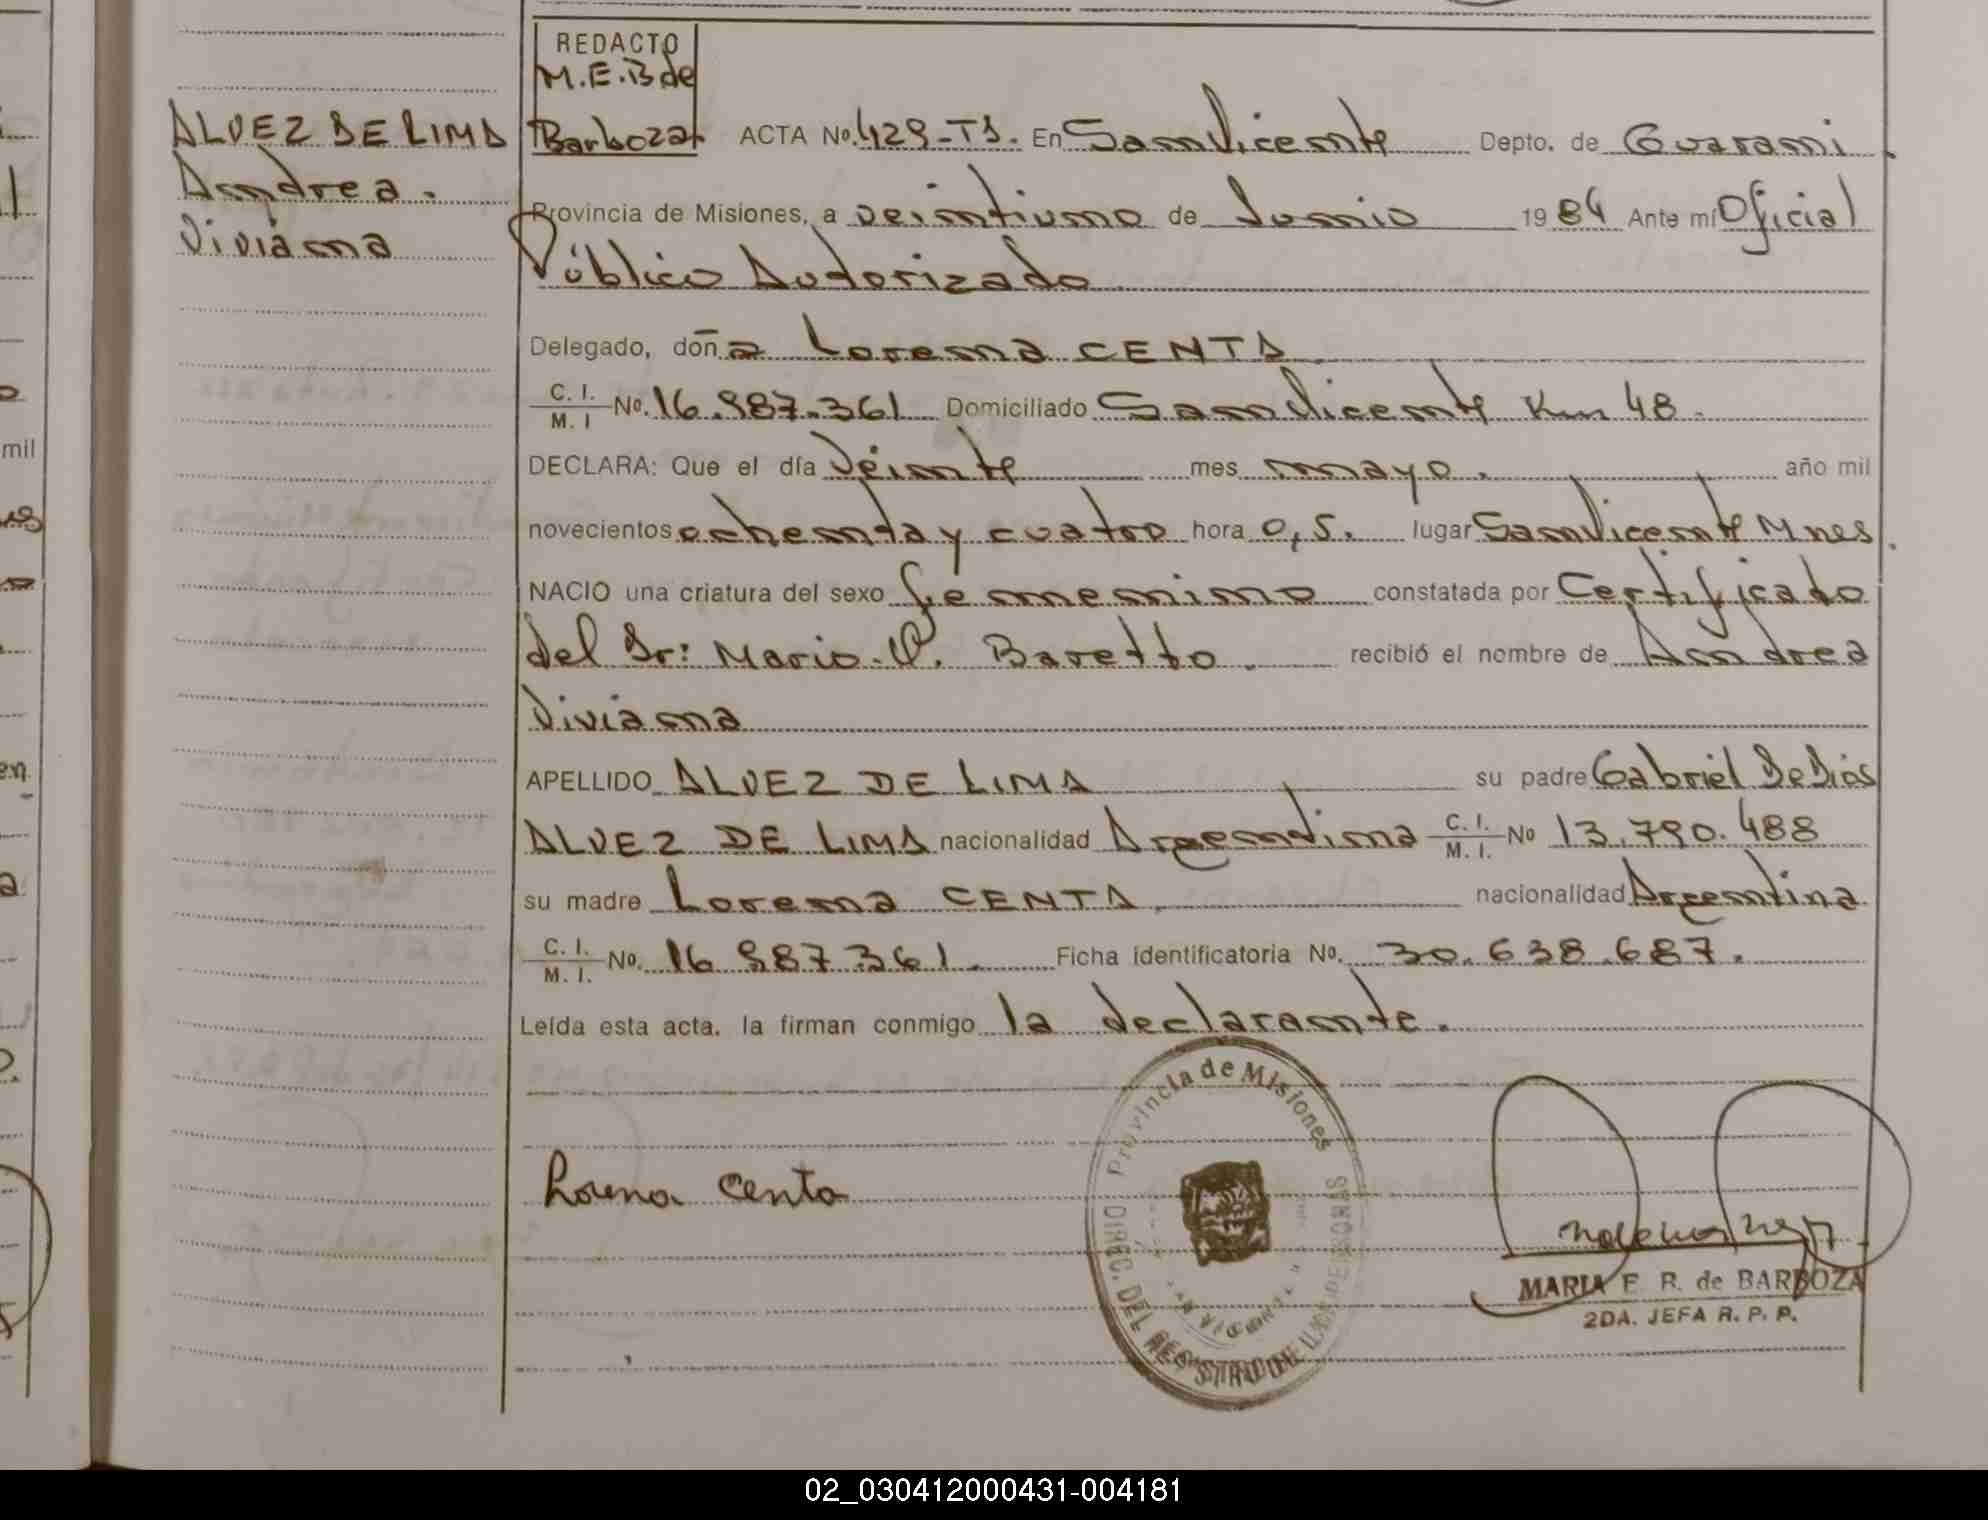 REDACTO
M.E.B de
Barboza
ALVEZ DE LIMA
Andrea
Viviana
ACTA No. 429-T1. En San Vicente Depto. de Guarani
Provincia de Misiones, a veintiuno de Junio 1984 Ante mí Oficial
Público Autorizado
Delegado, doña Lorena CENTA
C. I. / M. I No. 16.987.361 Domiciliado San Vicente Km 48.
DECLARA: Que el día Veinte mes mayo. año mil
novecientos ochenta y cuatro hora 0,5. lugar San Vicente Mnes.
NACIO una criatura del sexo femenino constatada por Certificado
del Dr: Mario. O. Baretto. recibió el nombre de Andrea
Viviana
APELLIDO ALVEZ DE LIMA su padre Gabriel De Dios
ALVEZ DE LIMA nacionalidad Argentina C. I. / M. I. No 13.790.488
su madre Lorena CENTA. nacionalidad Argentina
C. I. / M. I. No. 16 987 361. Ficha identificatoria No. 30.638.687.
Leída esta acta, la firman conmigo la declarante.
Lorena Centa
Provincia de Misiones
DIREC. DEL REGISTRO DE LAS PERSONAS
SAN VICENTE
MARIA E. B. de BARBOZA
2DA. JEFA R. P. P.
02_030412000431-004181